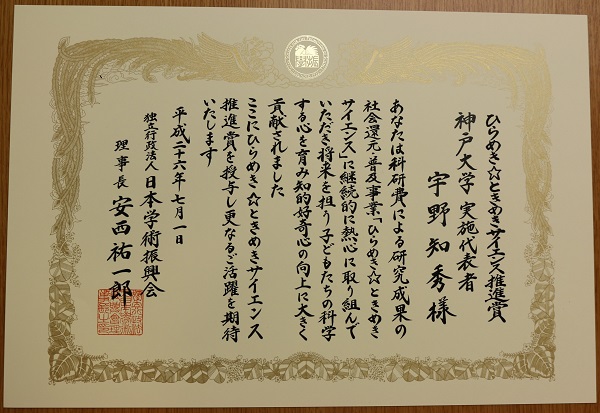 ひらめき☆ときめきサイエンス推進賞
神戸大学 実施代表者
宇野知秀様
あなたは科研費による研究成果の
社会還元・普及事業「ひらめき☆ときめき
サイエンス」に継続的に熱心に取り組んで
いただき将来を担う子どもたちの科学
する心を育み知的好奇心の向上に大きく
貢献されました
ここにひらめき☆ときめきサイエンス
推進賞を授与し更なるご活躍を期待
いたします
平成二十六年七月一日
独立行政法人 日本学術振興会
理事長 安西祐一郎